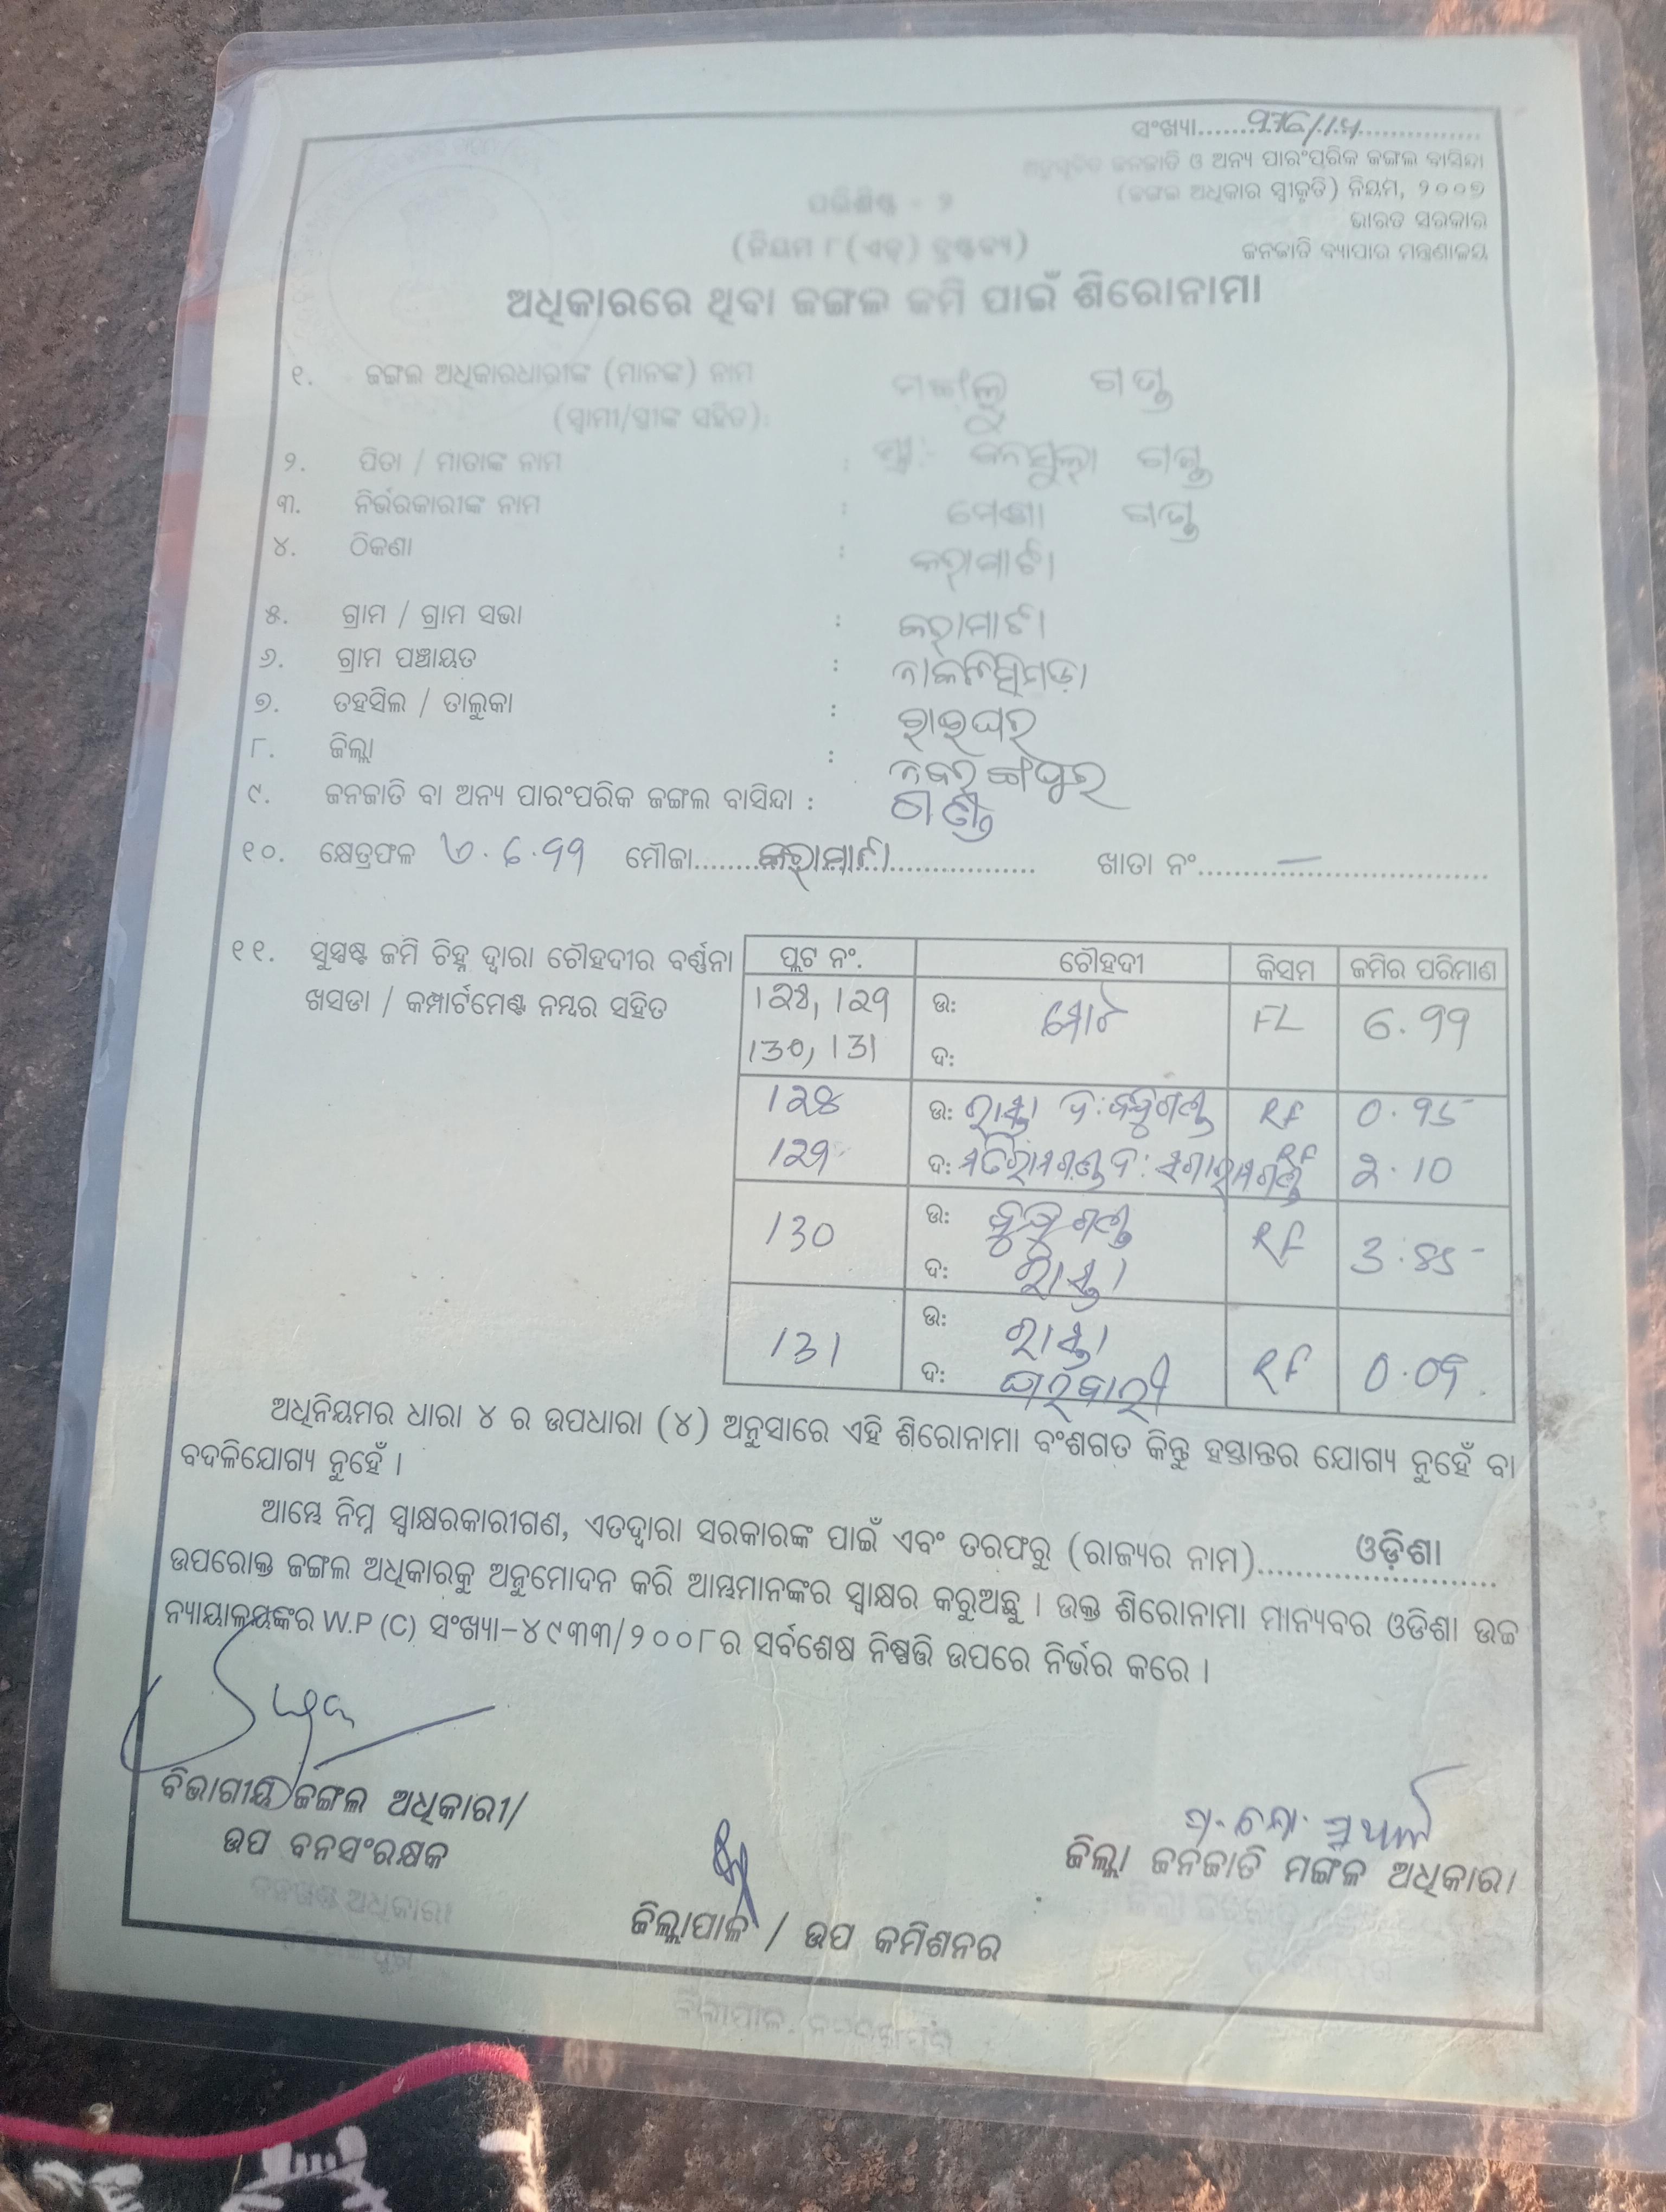 ସଂଖ୍ୟା
ଅନୁସୂଚିତ ଜନଜାତି ଓ ଅନ୍ୟ ପାରଂପରିକ ଜଙ୍ଗଲ ବାସିନ୍ଦା
(ଜଙ୍ଗଲ ଅଧିକାର ସ୍ୱୀକୃତି) ନିୟମ, ୨୦୦୭
ଭାରତ ସରକାର
ଜନଜାତି ବ୍ୟାପାର ମନ୍ତ୍ରଣାଳୟ
ପରିଶିଷ୍ଟ - ୨
(ନିୟମ ୮(ଏଚ୍) ଦ୍ରଷ୍ଟବ୍ୟ)
ଅଧିକାରରେ ଥିବା ଜଙ୍ଗଲ ଜମି ପାଇଁ ଶିରୋନାମା
୧. ଜଙ୍ଗଲ ଅଧିକାରଧାରୀଙ୍କ (ମାନଙ୍କ) ନାମ ଗଣ୍ଡ
(ସ୍ୱାମୀ/ସ୍ତ୍ରୀଙ୍କ ସହିତ):
୨. ପିତା / ମାତାଙ୍କ ନାମ : ଗଣ୍ଡ
୩. ନିର୍ଭରକାରୀଙ୍କ ନାମ : ଗଣ୍ଡ
୪. ଠିକଣା : କରାମାଟି
୫. ଗ୍ରାମ / ଗ୍ରାମ ସଭା : କରାମାଟି
୬. ଗ୍ରାମ ପଞ୍ଚାୟତ :
୭. ତହସିଲ / ତାଲୁକା : ରାଇଘର
୮. ଜିଲ୍ଲା : ନବରଙ୍ଗପୁର
୯. ଜନଜାତି ବା ଅନ୍ୟ ପାରଂପରିକ ଜଙ୍ଗଲ ବାସିନ୍ଦା : ଗଣ୍ଡ
୧୦. କ୍ଷେତ୍ରଫଳ ମୌଜା କରାମାଟି ଖାତା ନଂ –
୧୧. ସୁସ୍ପଷ୍ଟ ଜମି ଚିହ୍ନ ଦ୍ୱାରା ଚୌହଦୀର ବର୍ଣ୍ଣନା
ଖସଡା / କମ୍ପାର୍ଟମେଣ୍ଟ ନମ୍ବର ସହିତ
ପ୍ଲଟ ନଂ. ଚୌହଦୀ କିସମ ଜମିର ପରିମାଣ
ଉ: ମୋଟ FL 6.99
130, 131 ଦ:
ଉ: ରାସ୍ତା RF 0.95
129 ଦ: RF 2.10
130 ଉ: RF 3.85
ଦ: ରାସ୍ତା
131 ଉ: ରାସ୍ତା RF
ଦ: ଘରବାରୀ
ଅଧିନିୟମର ଧାରା ୪ ର ଉପଧାରା (୪) ଅନୁସାରେ ଏହି ଶିରୋନାମା ବଂଶଗତ କିନ୍ତୁ ହସ୍ତାନ୍ତର ଯୋଗ୍ୟ ନୁହେଁ ବା
ବଦଳିଯୋଗ୍ୟ ନୁହେଁ ।
ଆମ୍ଭେ ନିମ୍ନ ସ୍ୱାକ୍ଷରକାରୀଗଣ, ଏତଦ୍ୱାରା ସରକାରଙ୍କ ପାଇଁ ଏବଂ ତରଫରୁ (ରାଜ୍ୟର ନାମ) ଓଡ଼ିଶା
ଉପରୋକ୍ତ ଜଙ୍ଗଲ ଅଧିକାରକୁ ଅନୁମୋଦନ କରି ଆମ୍ଭମାନଙ୍କର ସ୍ୱାକ୍ଷର କରୁଅଛୁ । ଉକ୍ତ ଶିରୋନାମା ମାନ୍ୟବର ଓଡିଶା ଉଚ୍ଚ
ନ୍ୟାୟାଳୟଙ୍କର W.P (C) ସଂଖ୍ୟା-୪୯୩୩/୨୦୦୮ ର ସର୍ବଶେଷ ନିଷ୍ପତ୍ତି ଉପରେ ନିର୍ଭର କରେ ।
ବିଭାଗୀୟ ଜଙ୍ଗଲ ଅଧିକାରୀ/
ଉପ ବନସଂରକ୍ଷକ
ଜିଲ୍ଲା ଜନଜାତି ମଙ୍ଗଳ ଅଧିକାରୀ
ଜିଲ୍ଲାପାଳ / ଉପ କମିଶନର